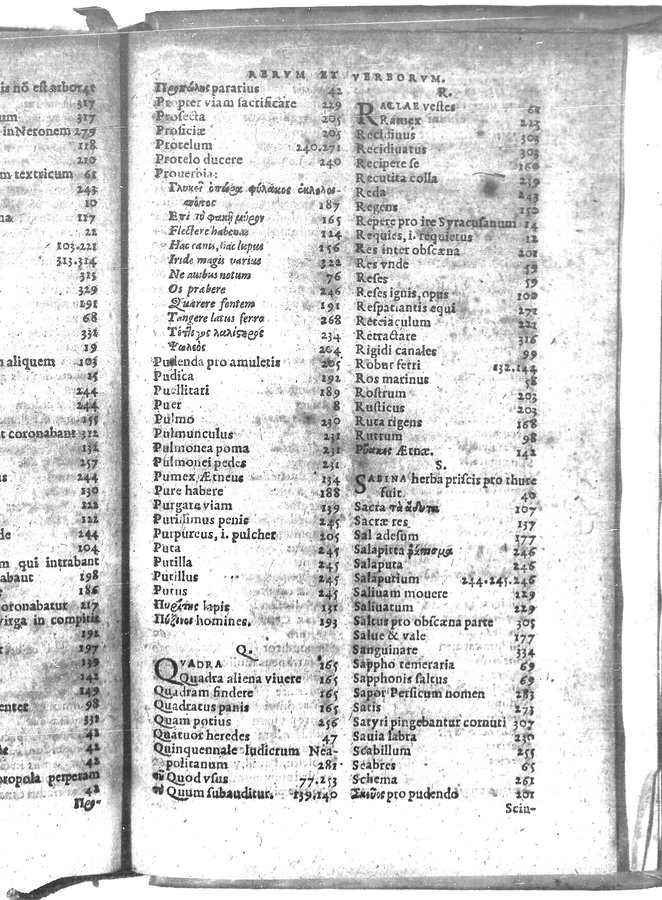 is nō est arbor 41
317
um 317
in Neronem 279
118
210
m textricum 61
243
10
na 117
22
103.221
313.314
315
329
191
68
331
19
n aliquem 103
15
244
244
155
t coronabant 312
132
257
us 244
130
122
122
de 244
104
m qui intrabant
abant 198
186
coronabatur 217
virga in compitis
192
197
139
142
149
enter 98
331
42
42
42
propola perperam
42
Προ-
RERVM ET VERBORVM.
Προπώλης pararius 42
Propter viam sacrificare 229
Prosecta 205
Prosiciæ 205
Protelum 240.271
Protelo ducere 240
Prouerbia:
Γλυκεῖ ὀπώρα φύλακος ἐκλελοι-
πότος 187
Επὶ τῷ φακῇ μύρον 165
Flectere habenas 124
Hac canis, hac lupus 156
Iride magis varius 322
Ne auibus notum 76
Os præbere 246
Quærere fontem 191
Tangere latus ferro 268
Τέτλιγος λαλίστερος 234
Ψωλὸς 204
Pudenda pro amuletis 205
Pudica 192
Puellitari 189
Puer 8
Pulmo 230
Pulmunculus 231
Pulmonea poma 231
Pulmonei pedes 231
Pumex Ætneus 134
Pure habere 188
Purgare viam 139
Purissimus penis 245
Purpureus, i. pulcher 205
Puta 245
Putilla 245
Putillus 245
Putus 245
Πυρίτης lapis 131
Πύξινος homines. 193
Q.
QVADRA 165
Quadra aliena viuere 165
Quadram findere 165
Quadratus panis 165
Quam potius 256
Quatuor heredes 47
Quinquennale Iudicrum Nea-
politanum 281
τὸ Quod vsus 77.253
τὸ Quum subauditur. 139.140
R.
RALLAE vestes 61
Ramex 223
Recidiuus 303
Recidiuatus 303
Recipere se 160
Recutita colla 239
Reda 243
Regens 150
Repere pro ire Syracusanum 14
Requies, i. requietus 12
Res inter obscæna 201
Res vnde 59
Reses 59
Reses ignis, opus 102
Respatiantis equi 271
Reteiaculum 221
Retractare 316
Rigidi canales 99
Robur ferri 132.144
Ros marinus 58
Rostrum 203
Rusticus 203
Ruta rigens 168
Rutrum 98
Ρύακος Ætnæ. 142
S.
SABINA herba priscis pro thure
fuit 40
Sacra τὰ ἄδυτα 107
Sacræ res 137
Sal adesum 177
Salapitta ῥάπισμα 246
Salaputa 246
Salaputium 244.245.246
Saliuam mouere 229
Saliuatum 229
Saltus pro obscæna parte 305
Salue & vale 177
Sanguinare 334
Sappho temeraria 69
Sapphonis saltus 69
Sapor Persicum nomen 283
Satis 273
Satyri pingebantur cornuti 307
Sauia labra 230
Scabillum 255
Scabres 65
Schema 261
Σκεῦος pro pudendo 201
Scin-